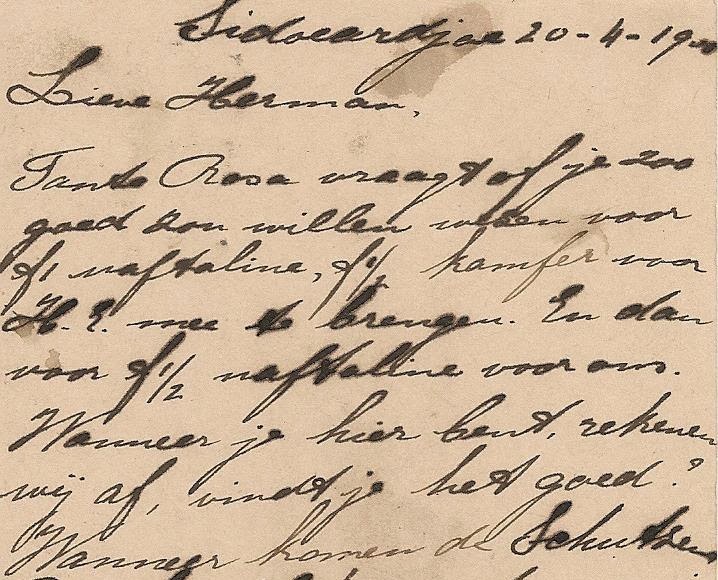 Sidoeardjoe 20-4-19
Lieve Herman,
Tante Rosa vraagt of je zoo
goed zou willen wezen voor
f1 naftaline, f½ kamfer voor
H.E. mee te brengen. En dan
voor f½ naftaline voor ons.
Wanneer je hier bent, rekenen
wij af, vindt je het goed?
Wanneer komen de